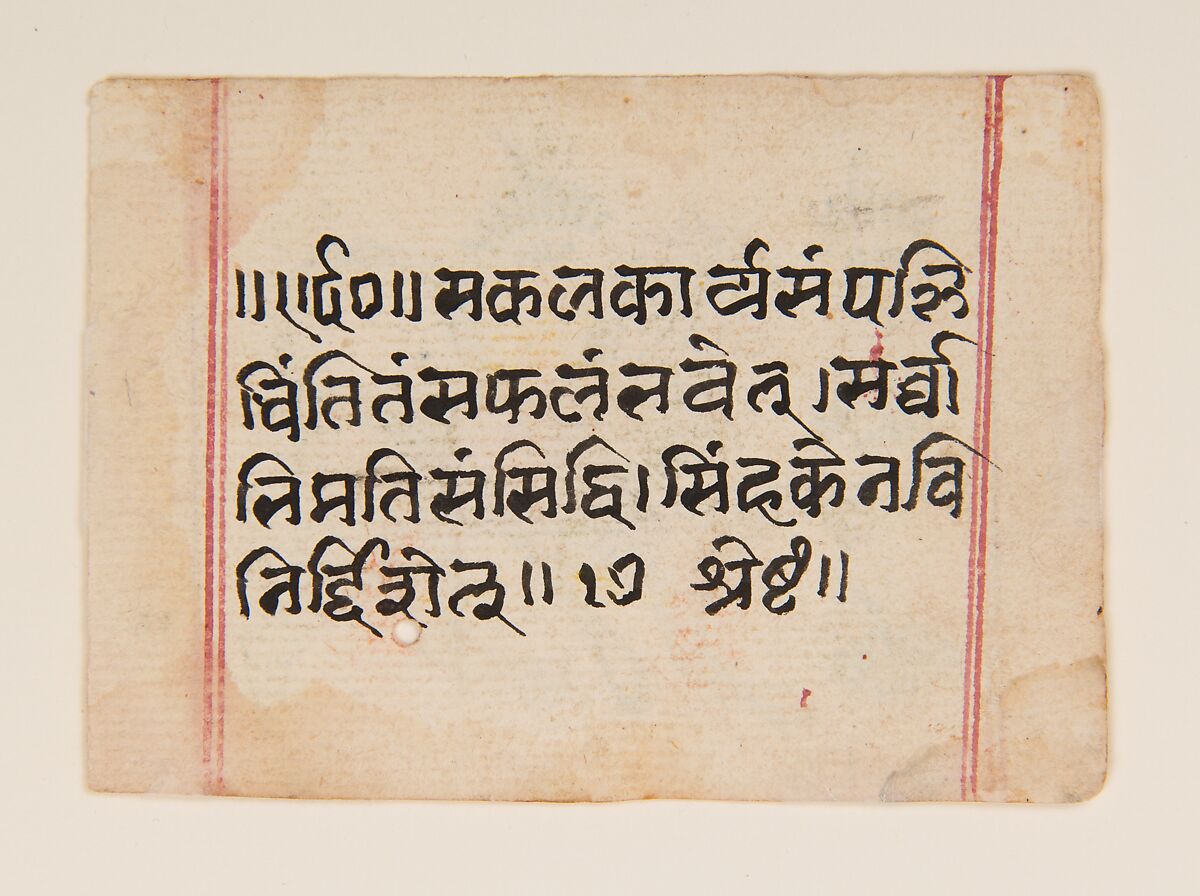 ॥ए६०॥सकलकार्यसंपत्ति
श्चिंतितंसफलंभवेत्।सर्वा
निमतिसंसिद्धि।सिंहकेनवि
निर्द्दिशेत्॥१७ श्रेष्टं॥